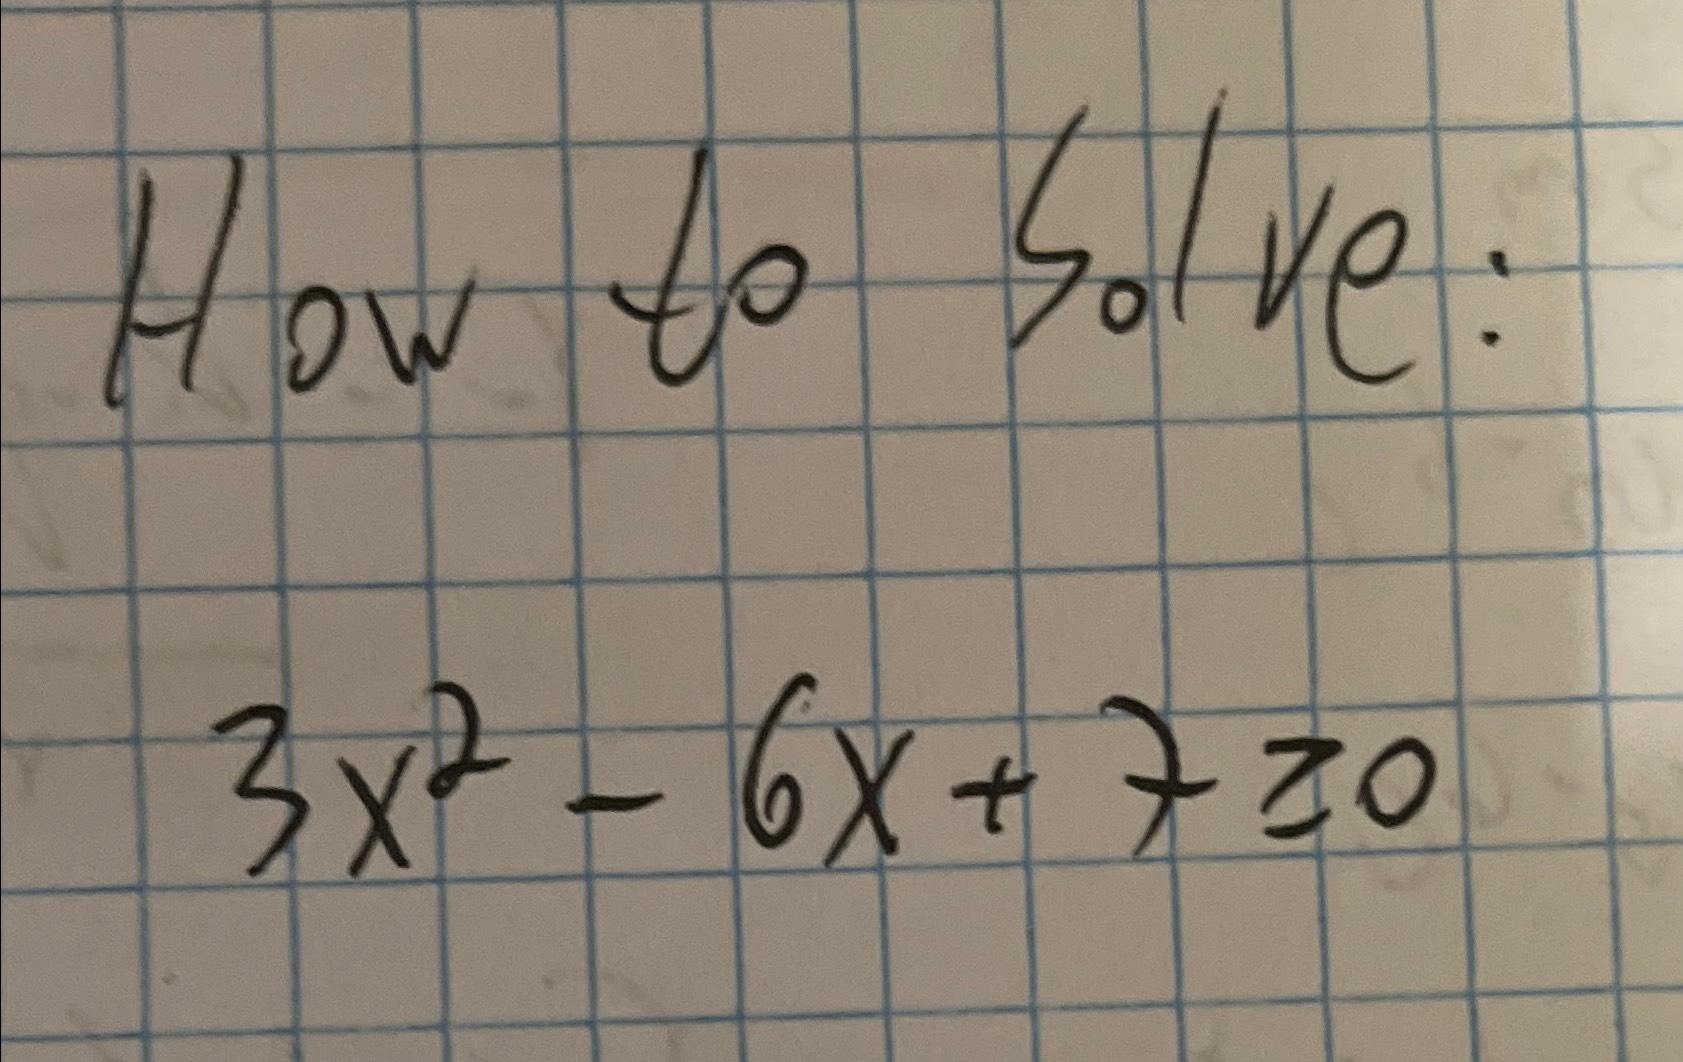 How to Solve:
3x² - 6x + 7 ≥ 0